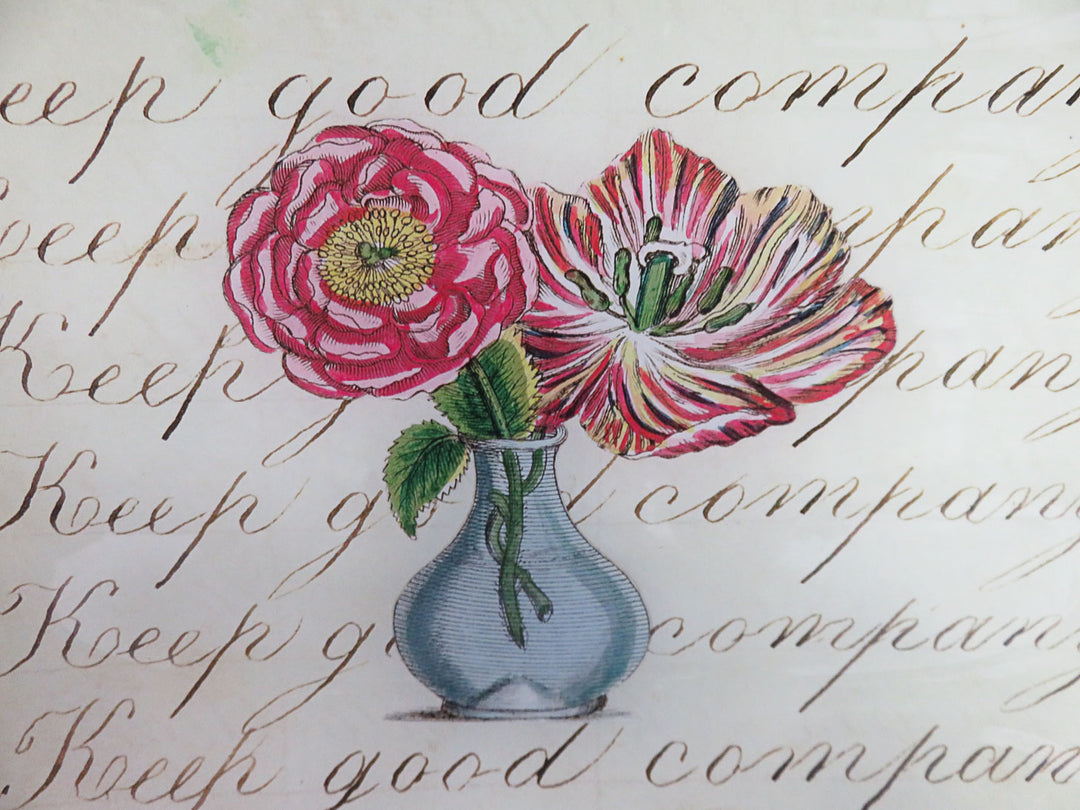 eep good compan
Keep compan
Keep pan
Keep g company
Keep g company
Keep good compan